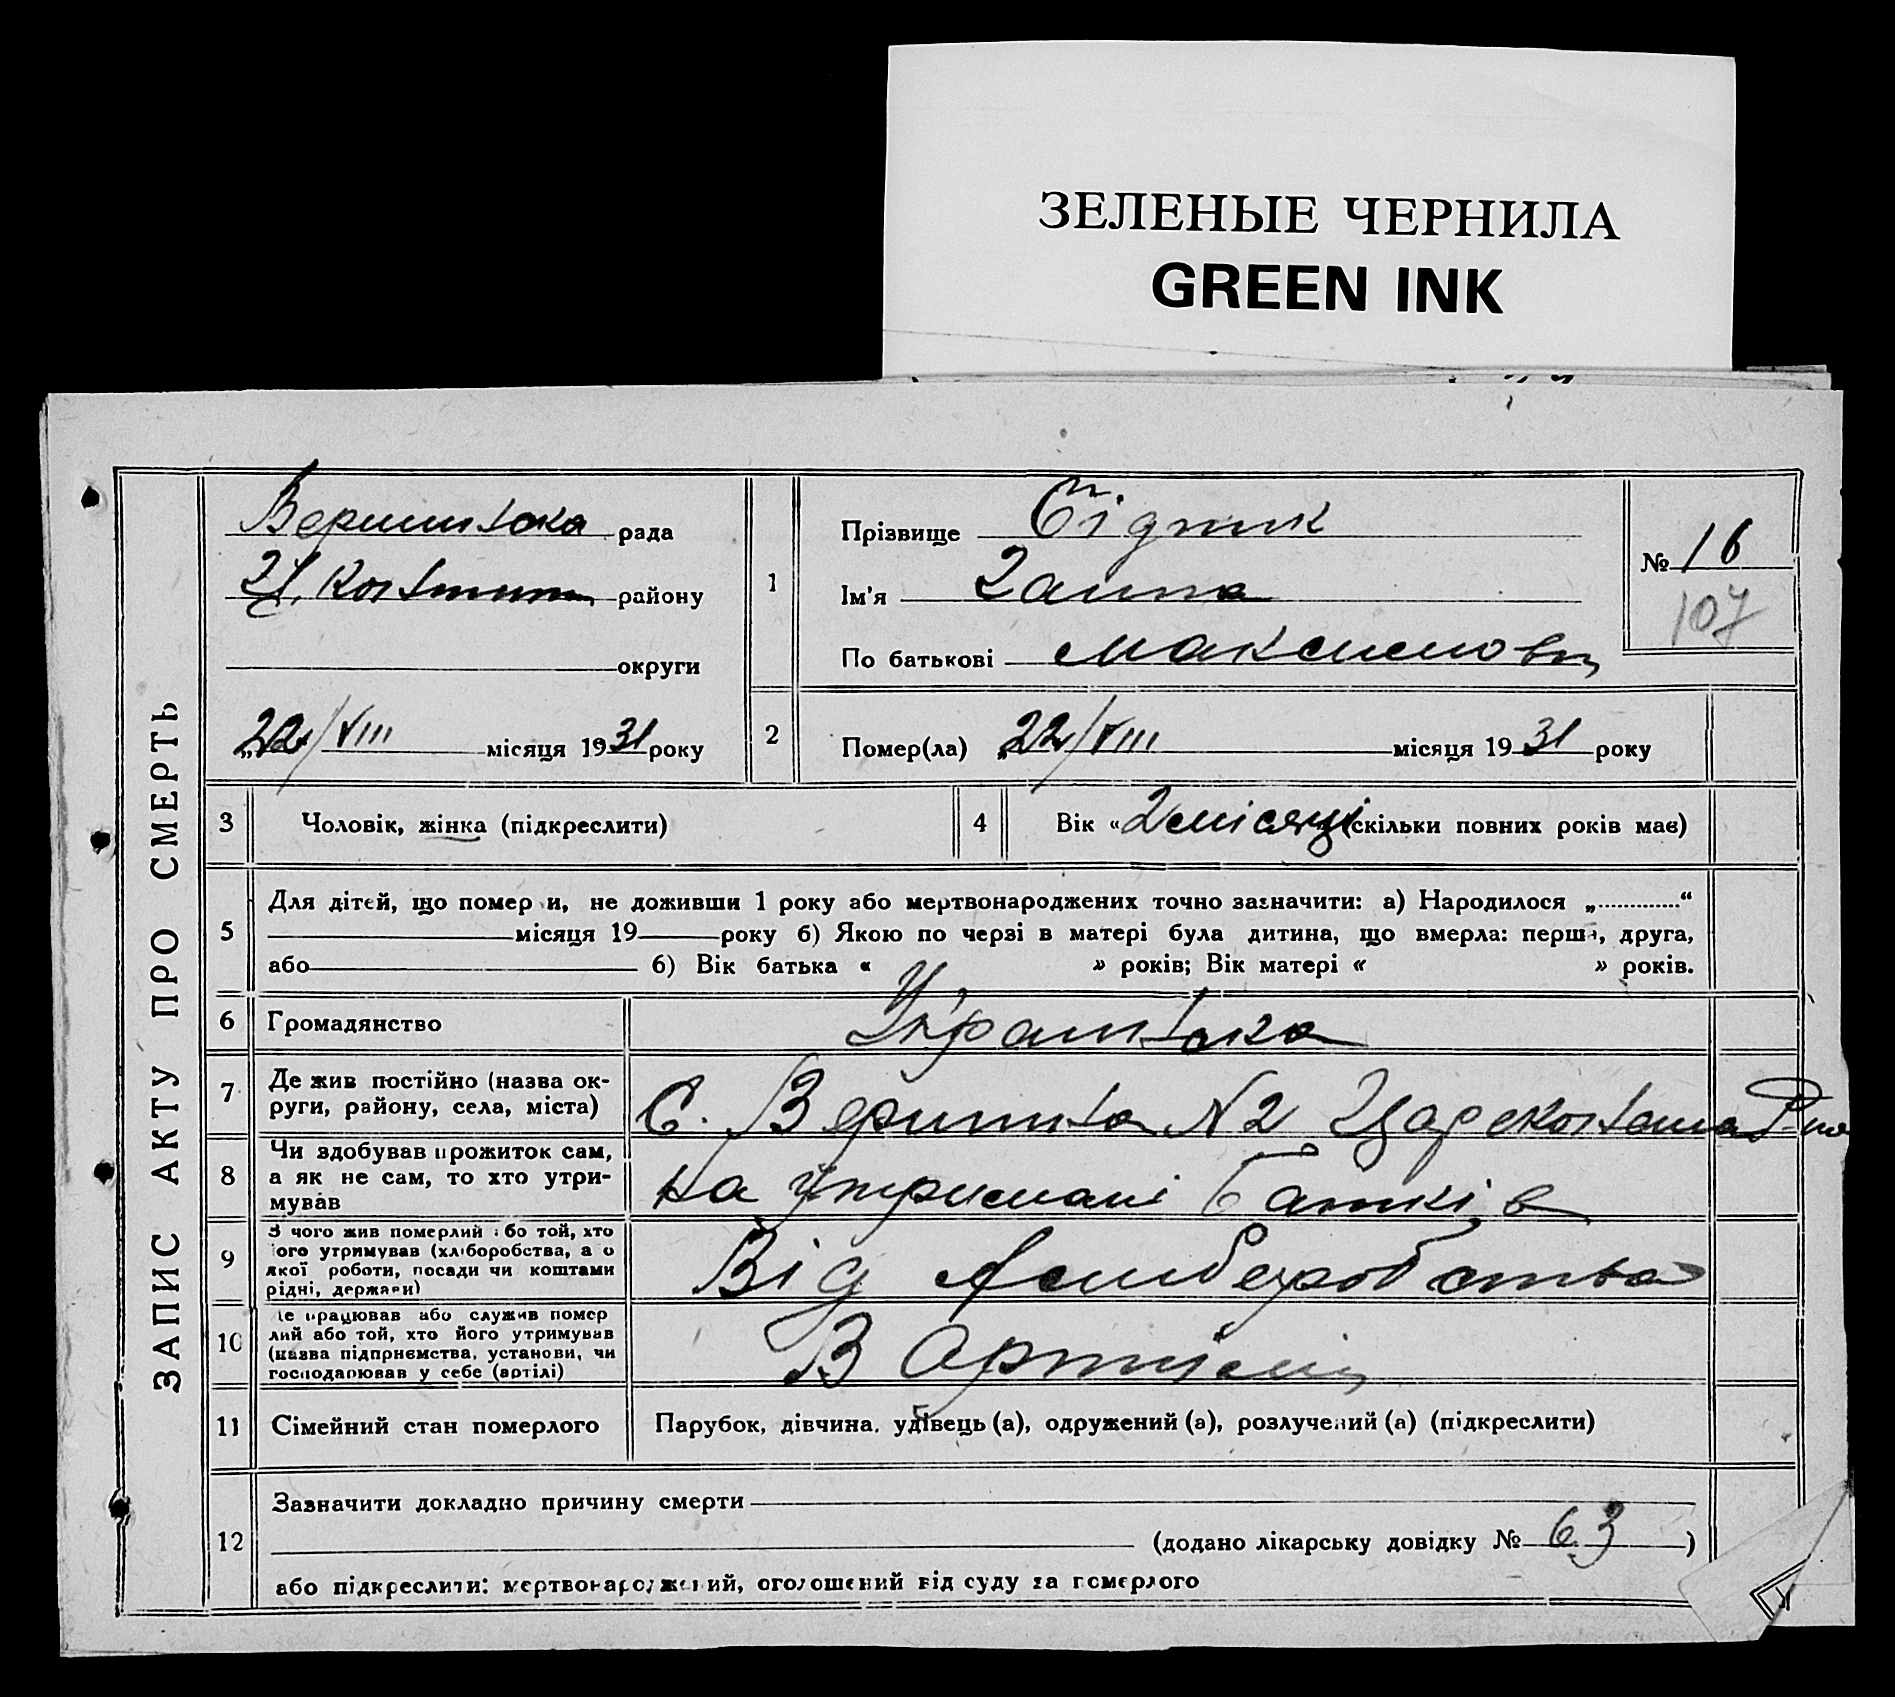 ЗЕЛЕНЫЕ ЧЕРНИЛА
GREEN INK
ЗАПИС АКТУ ПРО СМЕРТЬ
рада
району
округи
„22/VIII місяця 1931 року
1
Прізвище Бідник
Ім'я Ганна
По батькові Максимовн
№ 16
107
2
Помер(ла) „22/VIII місяця 1931 року
3
Чоловік, жінка (підкреслити)
4
Вік « 2 місяці (скільки повних років має)
5
Для дітей, що померли, не доживши 1 року або мертвонароджених точно зазначити: а) Народилося „ “
місяця 19 року б) Якою по черзі в матері була дитина, що вмерла: перша, друга,
або б) Вік батька « » років; Вік матері « » років.
6
Громадянство
Українська
7
Де жив постійно (назва ок-
руги, району, села, міста)
С. N2
8
Чи здобував прожиток сам,
а як не сам, то хто утри-
мував
на утримані батьків
9
З чого жив померлий або той, хто
його утримував (хліборобства, а о
якої роботи, посади чи коштами
рідні, держави)
Від
10
Де працював або служив помер
лий або той, хто його утримував
(назва підприємства, установи, чи
господарював у себе (артілі)
В Артілі
11
Сімейний стан померлого
Парубок, дівчина, удівець (а), одружений (а), розлучений (а) (підкреслити)
12
Зазначити докладно причину смерти
(додано лікарську довідку № 63 )
або підкреслити: мертвонароджений, оголошений від суду за померлого